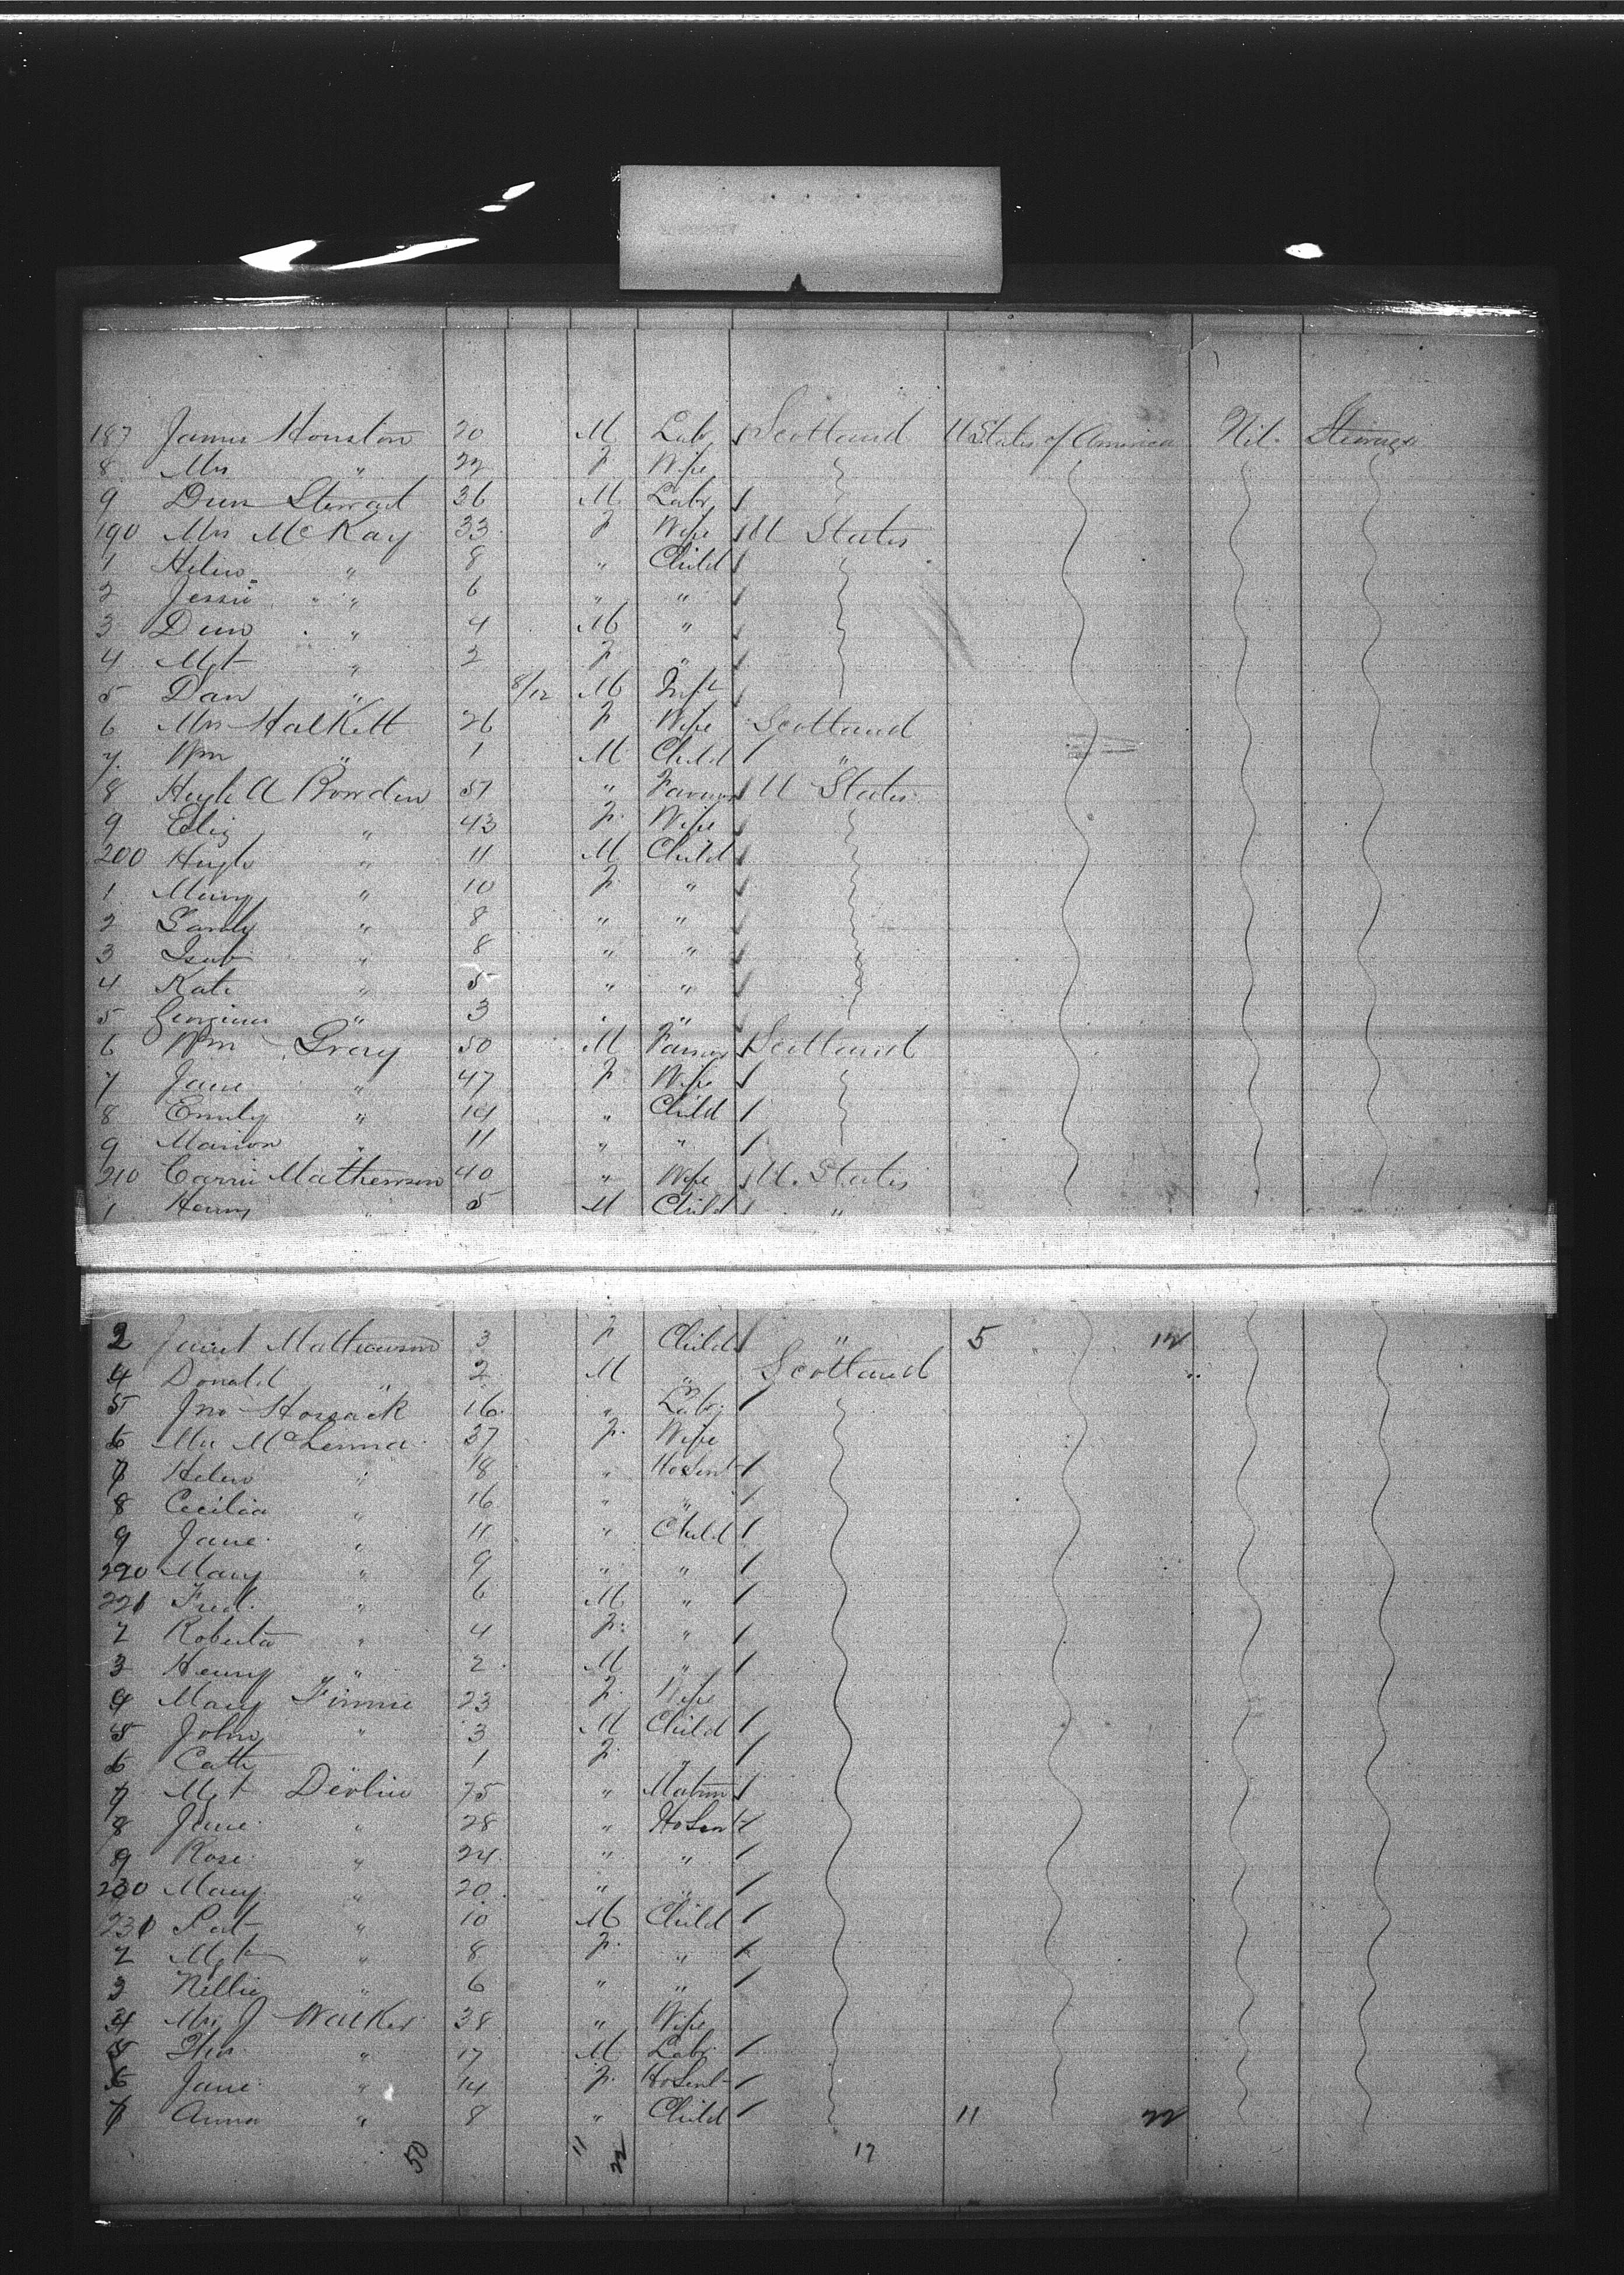 187 James Houston 20 M Labr Scotland U States of America Nil. Steerage
8 Mrs " 22 F Wife
9 Dun Stewart 36 M Labr
190 Mrs McKay 33 F Wife U States
1 Helen " 8 " Child
2 Jessie " 6 " "
3 Dun " 4 M "
4 Mgt " 2 F "
5 Dan " 8/12 M Inft
6 Mrs Halkett 26 F Wife Scotland
7 Wm " 1 M Child "
8 Hugh A Bowden 51 " Farmer U States
9 Eliz " 43 F Wife
200 Hugh " 11 M Child
1 Mary " 10 F "
2 " 8 " "
3 Isab " 8 " "
4 Kate " 5 " "
5 Georgina " 3 " "
6 Wm Gray 50 M Farmer Scotland
7 Jane " 47 F Wife
8 Emily " 14 " Child
9 Marion " 11 " "
210 Carrie Mathewson 40 " Wife U. States
1 Henry " 5 M Child "
2 Janet Mathewson 3 F Child " 5 12
4 Donald " 2 M " Scotland
5 Jno Hossack 16 " Labr
6 Mrs McLenna 37 F Wife
7 Helen " 18 " HoServt
8 Cecilia " 16 " "
9 Jane " 11 " Child
220 Mary " 9 " "
221 Fred " 6 M "
2 Roberta " 4 F "
3 Henry " 2 M "
4 Mary Finnie 23 F Wife
5 John " 3 M Child
6 Cath " 1 F "
7 Mgt Devlin 75 " Matron
8 Jane " 28 " HoServt
9 Rose " 24 " "
230 Mary " 20 " "
231 Pat " 10 M Child
2 Mgt " 8 F "
3 Nellie " 6 " "
4 Mrs J Walker 38 " Wife
5 " 17 M Labr
6 Jane " 14 F HoServt
7 Anna " 8 " Child 11 22
50 11 22 17